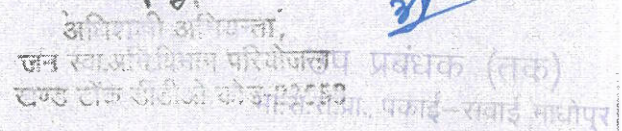 अधिशाषी अभियन्ता,
जन स्वा.अभि.विभाग परियोजना
खण्ड टोंक डीडीओ कोड
उप प्रबंधक (तक)
पकाई-सवाई माधोपुर